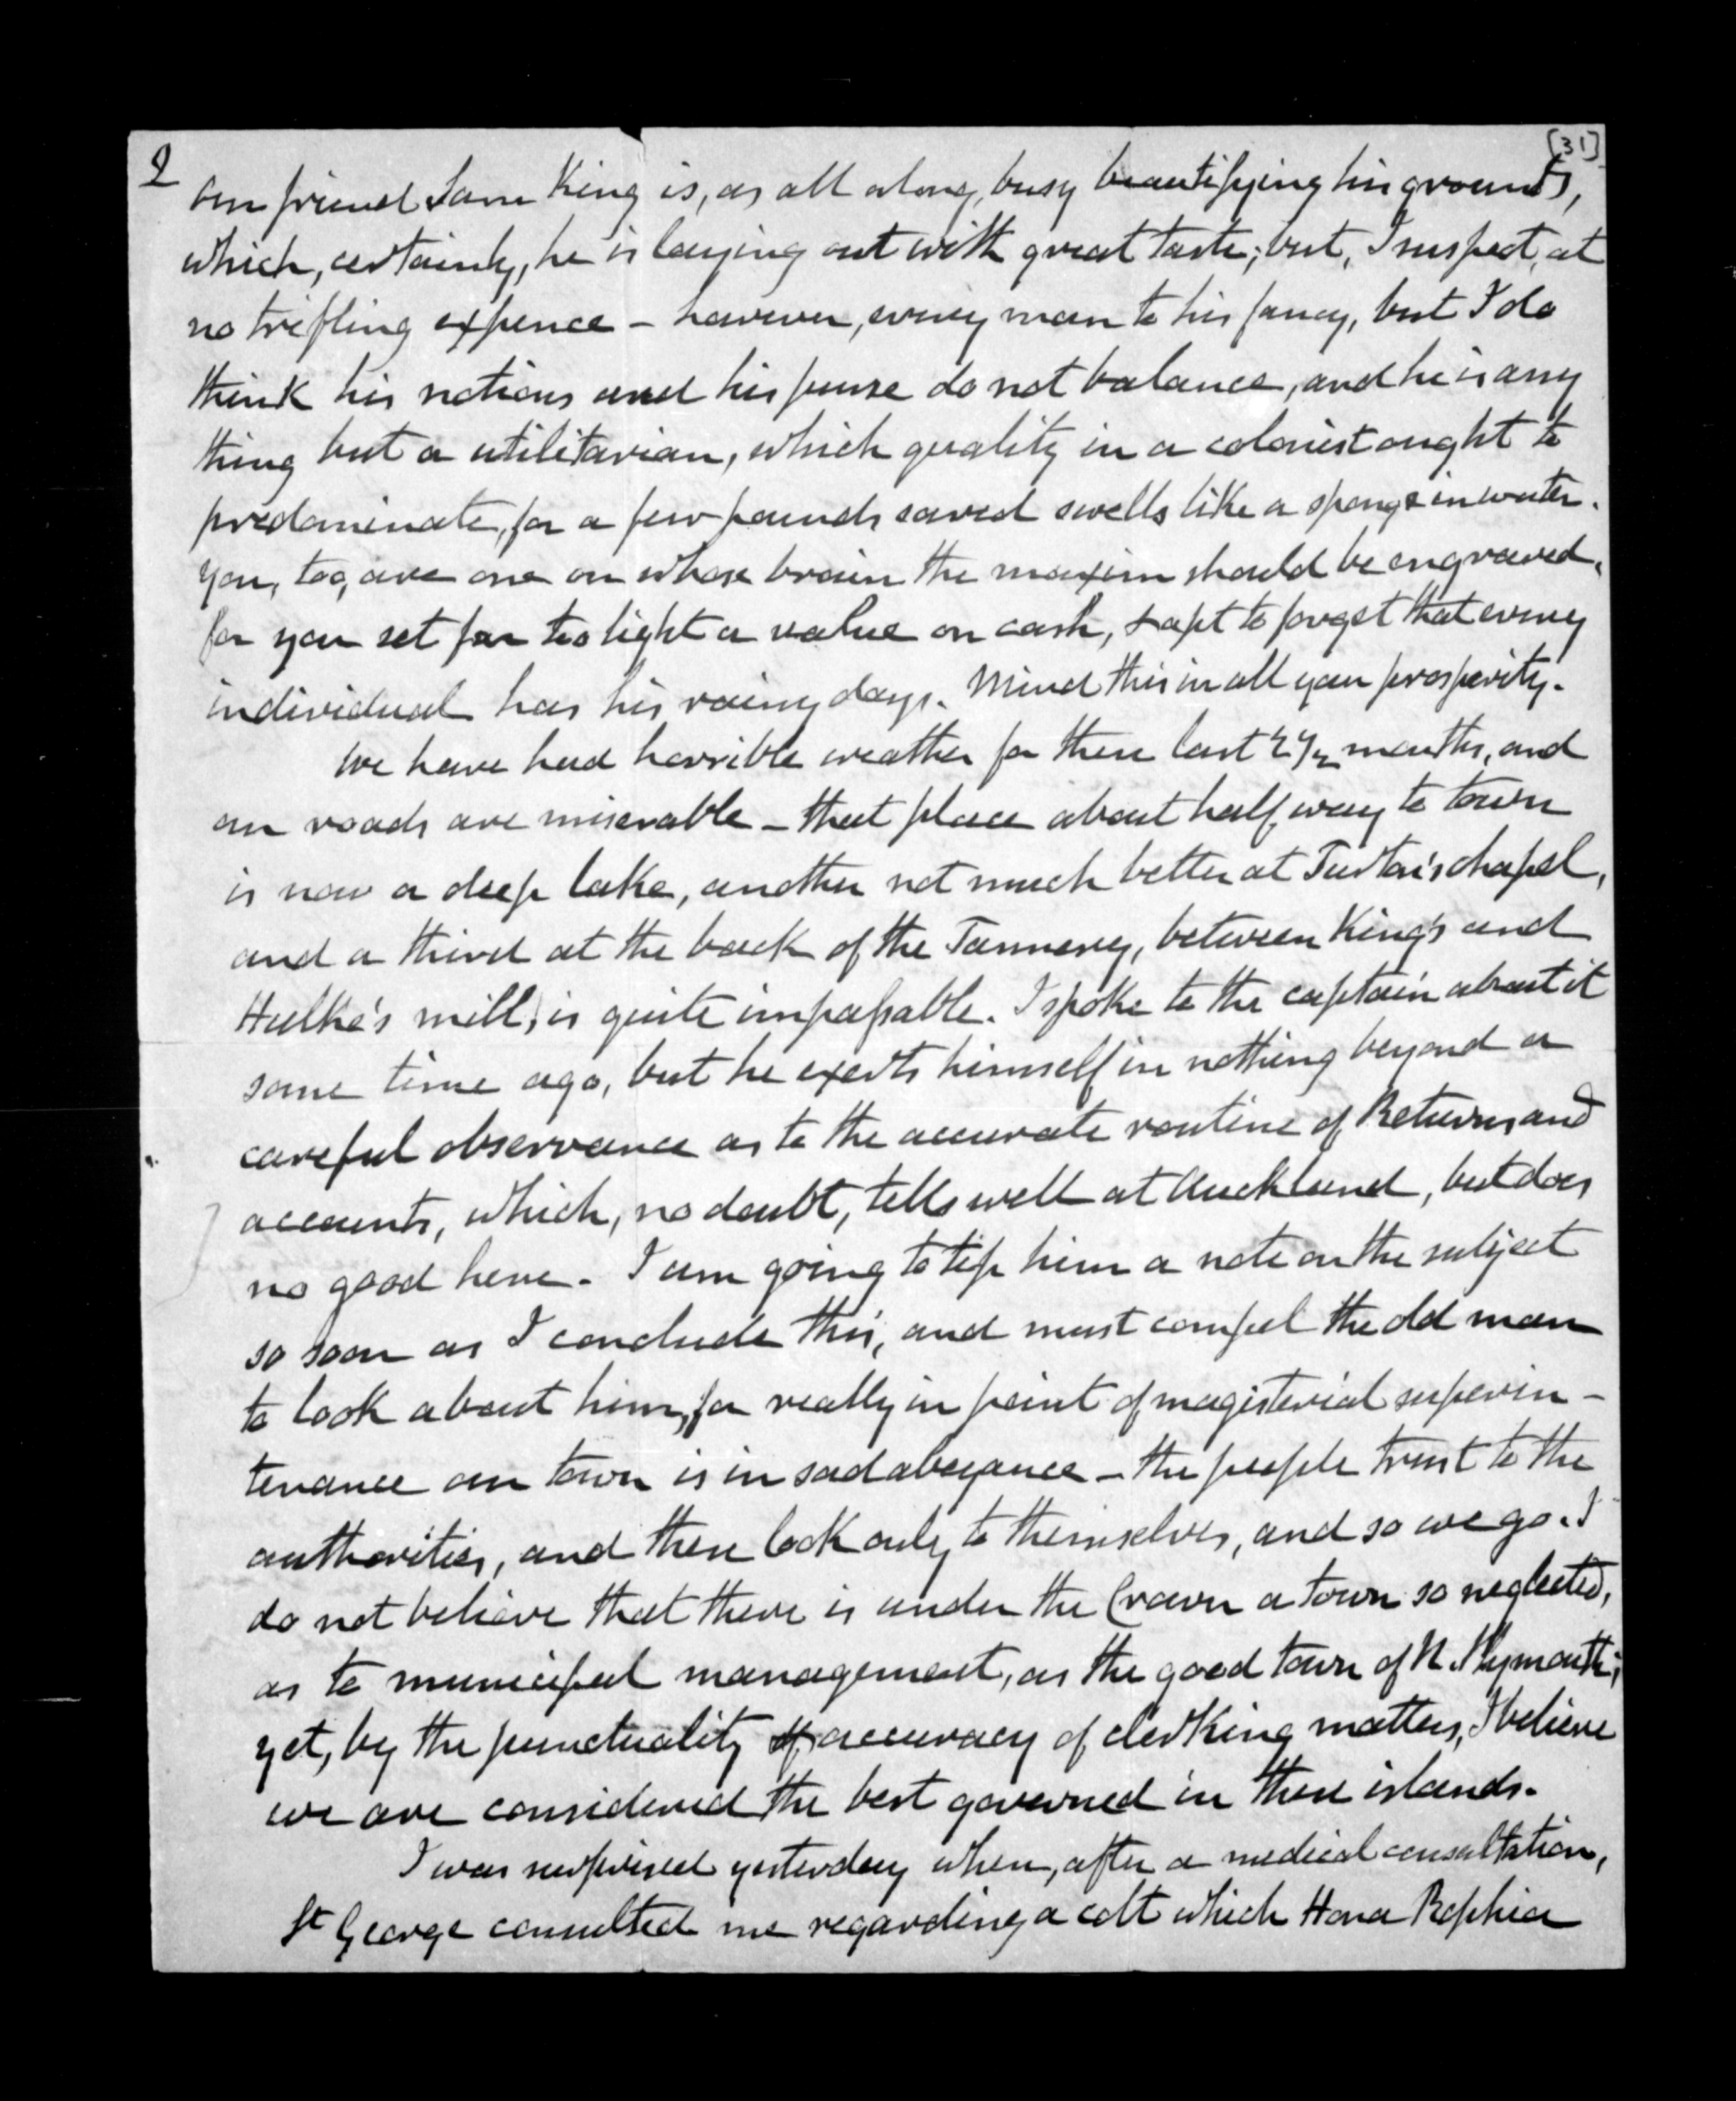 2
[31]
Our friend Sam King is, as all along, busy beautifying his grounds,
which, certainly, he is laying out with great taste; but, I suspect, at
no trifling expence – however, every man to his fancy, but I do
think his notions and his purse do not balance, and he is any
thing but a utilitarian, which quality in a colonist ought to
predominate, for a few pounds saved swells like a sponge in water.
You, too, are one on whose brain the maxim should be engraved,
for you set far too light a value on cash, & apt to forget that every
individual has his rainy days. Mind this in all your prosperity.
We have had horrible weather for these last 2 1/2 months, and
our roads are miserable – that place about half way to town
is now a deep lake, another not much better at Turton's chapel,
and a third at the back of the Tannery, between King's and
Hulke's mill, is quite impassable. I spoke to the captain about it
some time ago, but he exerts himself in nothing beyond a
careful observance as to the accurate routine of Returns and
accounts, which, no doubt, tells well at Auckland, but does
no good here. I am going to tip him a note on the subject
so soon as I conclude this, and must compel the old man
to look about him, for really in point of magisterial superin-
tenance our town is in sad abeyance – the people trust to the
authorities, and these look only to themselves, and so we go. I
do not believe that there is under the Crown a town so neglected,
as to municipal management, as the good town of N. Plymouth;
yet, by the punctuality & accuracy of clerking matters, I believe
we are considered the best governed in these islands.
I was surprised yesterday when, after a medical consultation,
St George consulted me regarding a colt which Hona Rophia